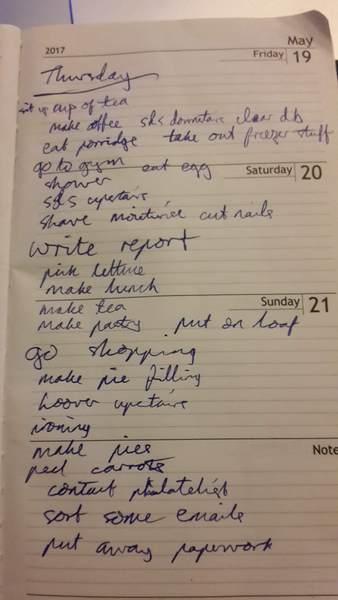 May
2017
Friday 19
Thursday
cup of tea
make coffee s&s downstairs clear db
eat porridge take out freezer stuff
go to gym eat egg
Saturday 20
shower
s&s upstairs
shave moisturise cut nails
write report
pick lettuce
make lunch
Sunday 21
make tea
make pastry put on loaf
go shopping
make pie filling
hoover upstairs
ironing
Note
make pies
peel carrots
contact philatelist
sort some emails
put away paperwork